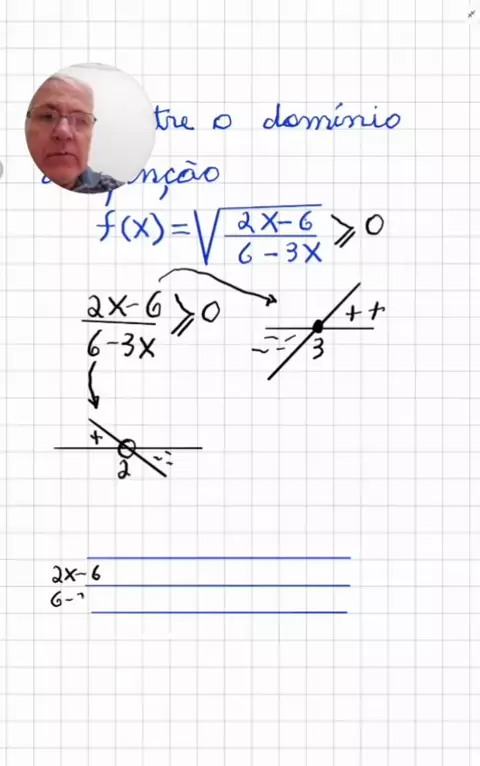 tre o domínio
nção
f(x) = √(2x-6)/(6-3x) ⩾ 0
(2x-6)/(6-3x) ⩾ 0
++
--- 3
+ 2 --
2x-6
6-